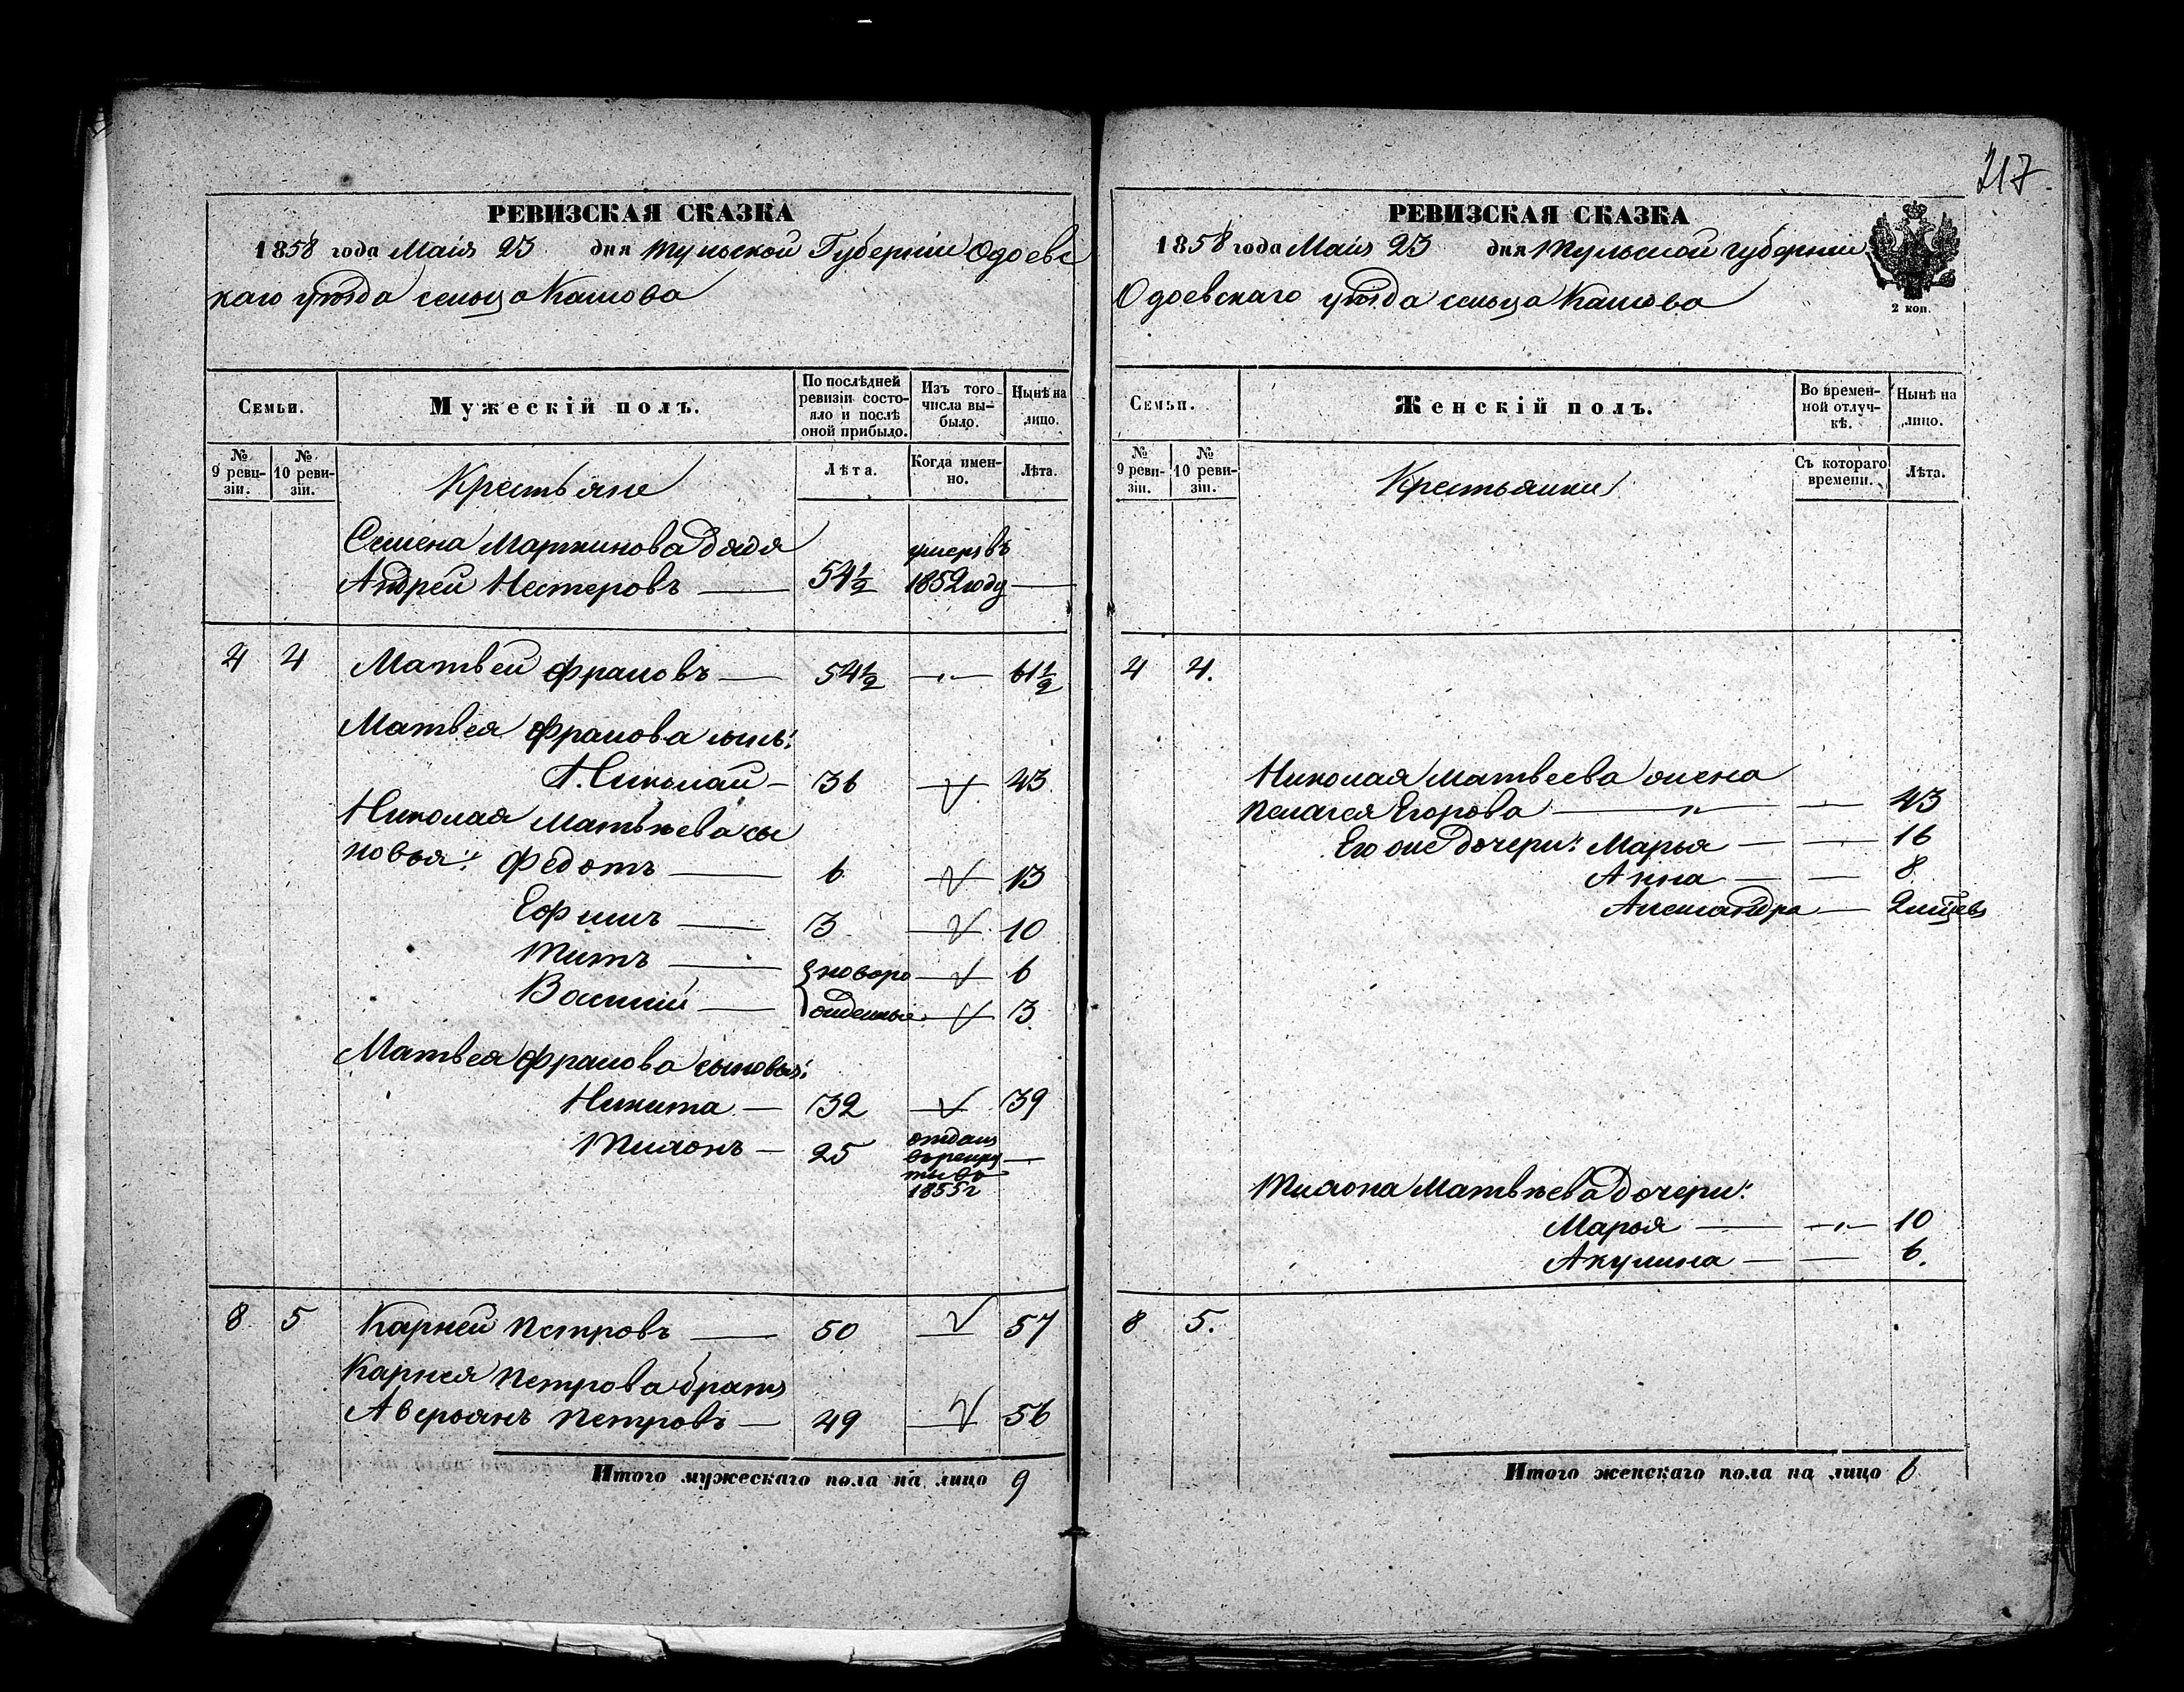 217.
РЕВИЗСКАЯ СКАЗКА
1858 года Маія 23 дня Тульской Губерніи Одоевс
каго уѣзда сельца Кашова
Семьи.
Мужескій полъ.
По послѣдней
ревизіи состо-
яло и послѣ
оной прибыло.
Изъ того
числа вы-
было.
Нынѣ на
лицо.
№
9 реви-
зіи.
№
10 реви-
зіи.
Крестьяне
Лѣта.
Когда имен-
но.
Лѣта.
Семена Мартинова дядя
Андрей Нестеровъ — 54½ умеръ въ 1852 году —
4 4 Матвей Фраловъ — 54½ —"— 61½
Матвея Фралова сынъ:
Николай — 36 — 43
Николая Матвѣева сы
новья: Федотъ — 6 — 13
Ефимъ — 3 — 10
Титъ — новоро — 6
Василій — жденные — 3
Матвея Фралова сыновья:
Никита — 32 — 39
Тихонъ — 25 отданъ
въ рекру
ты въ
1855 г —
8 5 Карней Петровъ — 50 — 57
Карнея Петрова братъ
Аверьянъ Петровъ — 49 — 56
Итого мужескаго пола на лицо 9
РЕВИЗСКАЯ СКАЗКА
1858 года Маія 23 дня Тульской губерніи
Одоевскаго уѣзда сельца Кашова
2 коп.
Семьи.
Женскій полъ.
Во времен-
ной отлуч-
кѣ.
Нынѣ на
лицо.
№
9 реви-
зіи.
№
10 реви-
зіи.
Крестьянки
Съ котораго
времени.
Лѣта.
4 4.
Николая Матвеева жена
Пелагея Егорова — " — — 43
Его же дочери: Марья — — 16
Анна — — 8
Александра — 2 мѣсяцевъ
Тихона Матвѣева дочери:
Марья — —"— 10
Акулина — — 6.
8 5.
Итого женскаго пола на лицо 6